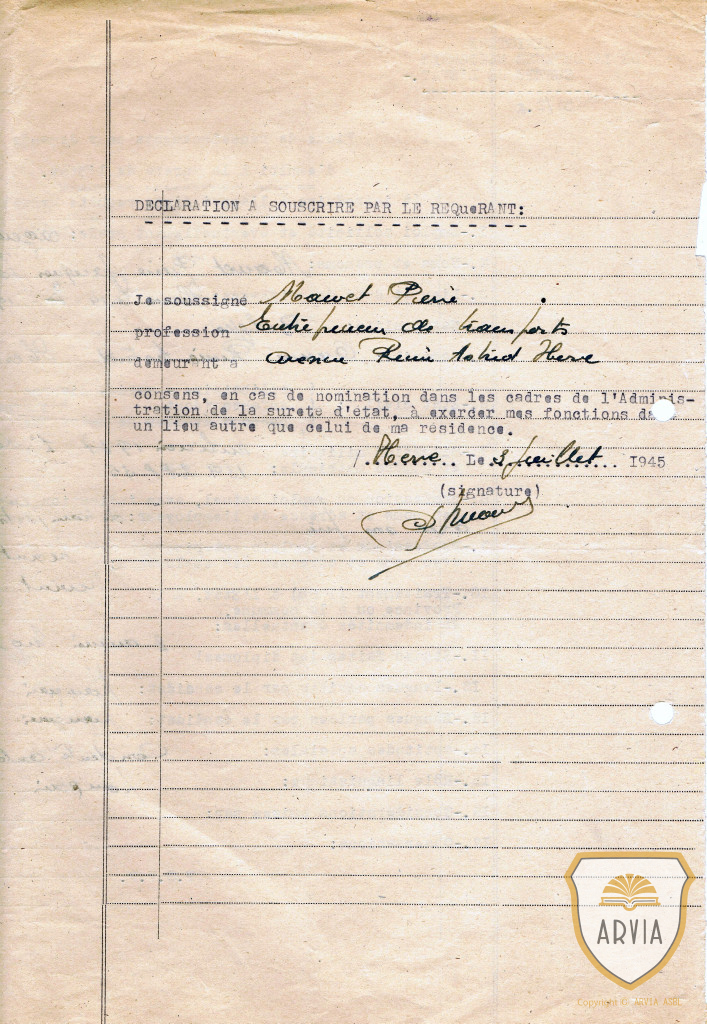 DECLARATION A SOUSCRIRE PAR LE REQUeRANT:
Je soussigné Mawet Pierre
profession Entrepreneur de transports
demeurant à avenue Reine Astrid Herve
consens, en cas de nomination dans les cadres de l'Adminis-
tration de la sureté d'état, à exercer mes fonctions da
un lieu autre que celui de ma résidence.
Herve Le 3 juillet 1945
(signature)
ARVIA
Copyright © ARVIA ASBL